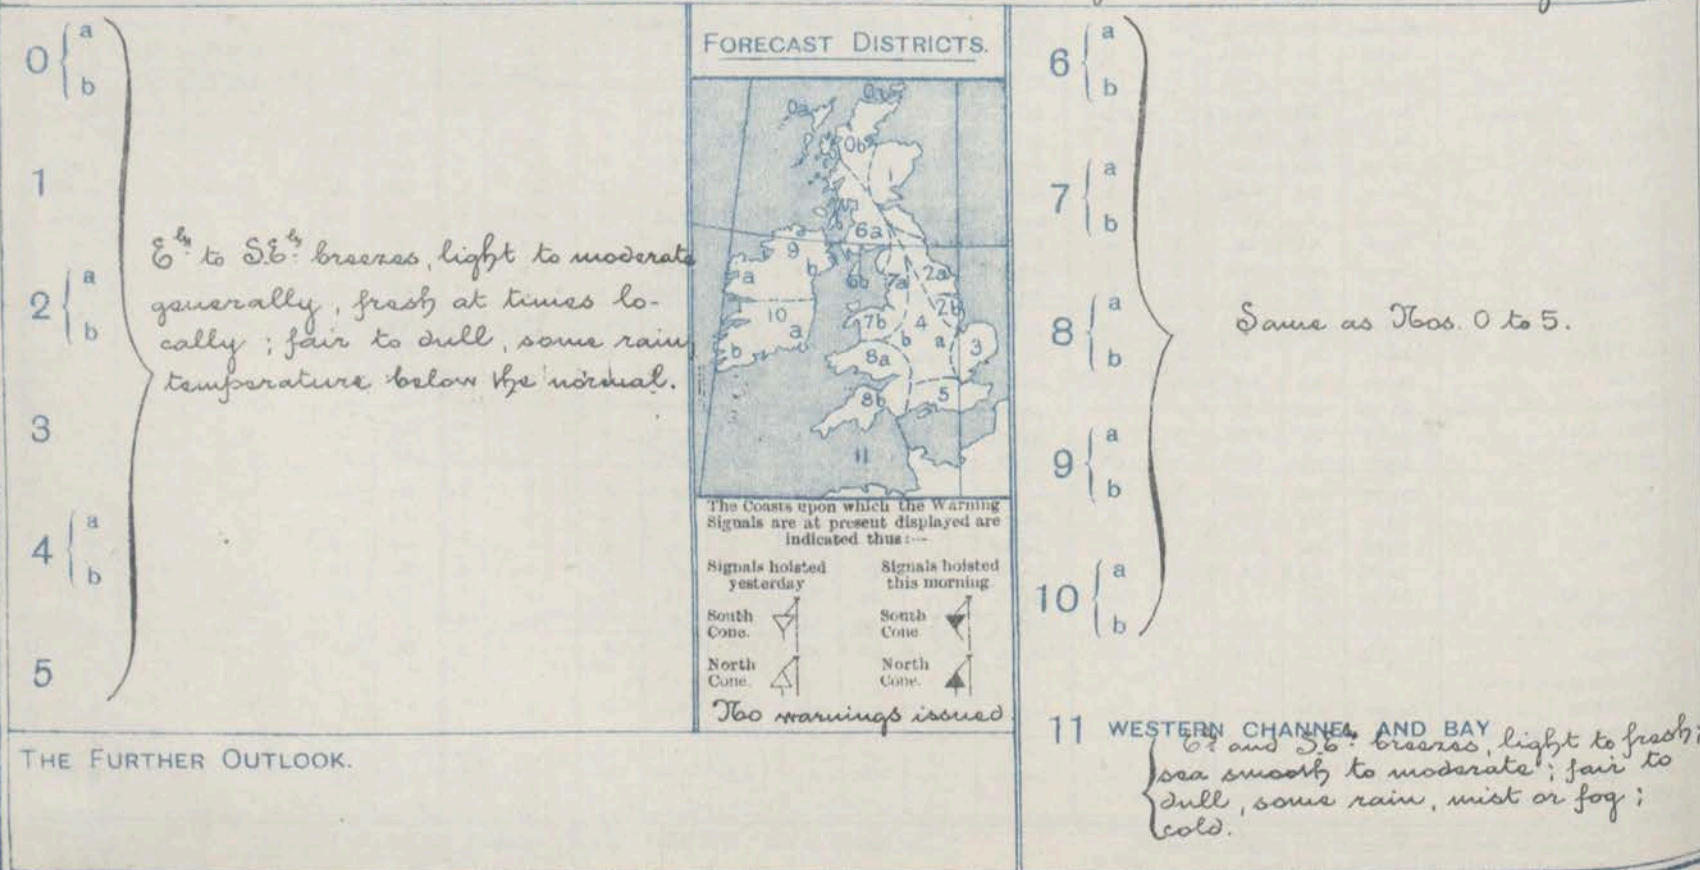 0 { a
b
1
2 { a
b
3
4 { a
b
5
Ely. to S.Ely. breezes, light to moderate
generally, fresh at times lo-
cally; fair to dull, some rain
temperature below the normal.
THE FURTHER OUTLOOK.
FORECAST DISTRICTS.
0a 0a
0b
6a
9
a b 6b 7a 2a
2b
10 7b 4
a b a 3
b 8a
8b 5
11
The Coasts upon which the Warning
Signals are at present displayed are
indicated thus:—
Signals hoisted
yesterday
Signals hoisted
this morning
South
Cone.
South
Cone
North
Cone.
North
Cone.
No warnings issued
6 { a
b
7 { a
b
8 { a
b
9 { a
b
10 { a
b
Same as Nos. 0 to 5.
11 WESTERN CHANNEL AND BAY
E. and S.E. breezes, light to fresh;
sea smooth to moderate; fair to
dull, some rain, mist or fog;
cold.